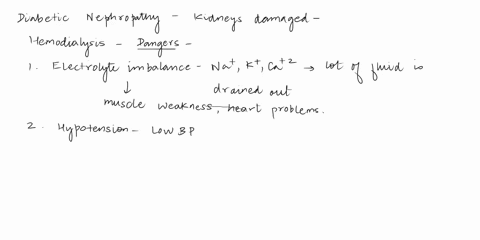 Diabetic Nephropathy - Kidneys damaged -
Hemodialysis - Dangers -
1. Electrolyte imbalance - Na+, K+, Ca+2 → lot of fluid is
↓ drained out
muscle weakness, heart problems.
2. Hypotension - Low BP